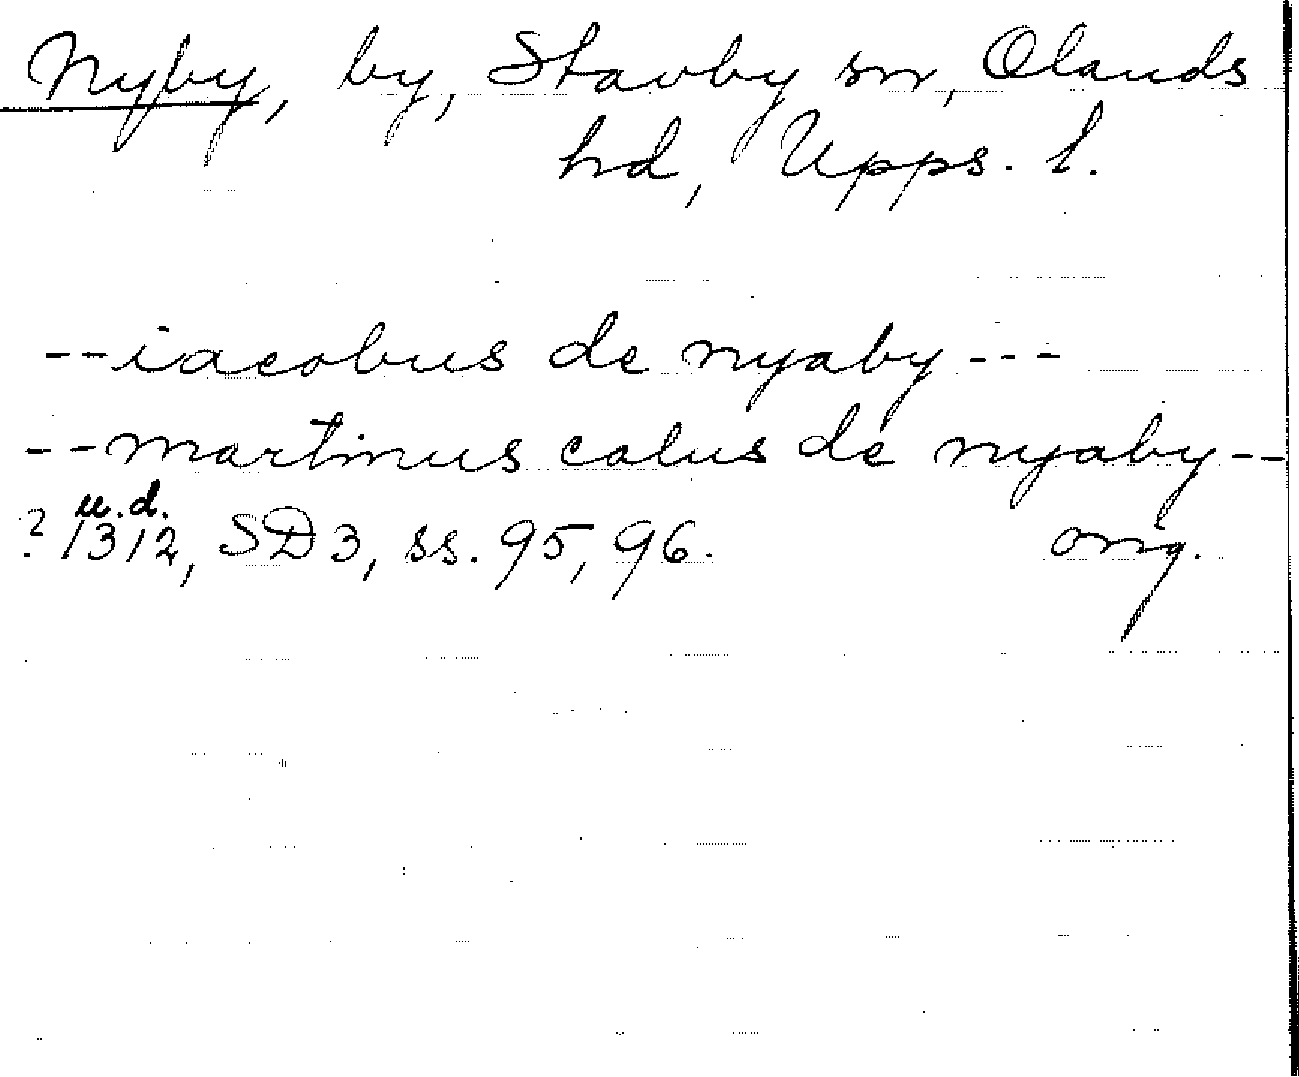 Nyby, by, Stavby sn, Olands
hd, Upps. l.
--iacobus de nyaby---
--martinus calus de nyaby--
u.d.
? 1312, SD3, ss. 95, 96. orig.